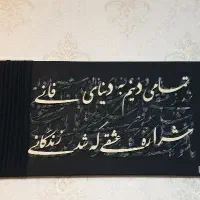 تمامی دینم به دنیای فانی
شراره عشقی که شد زندگانی